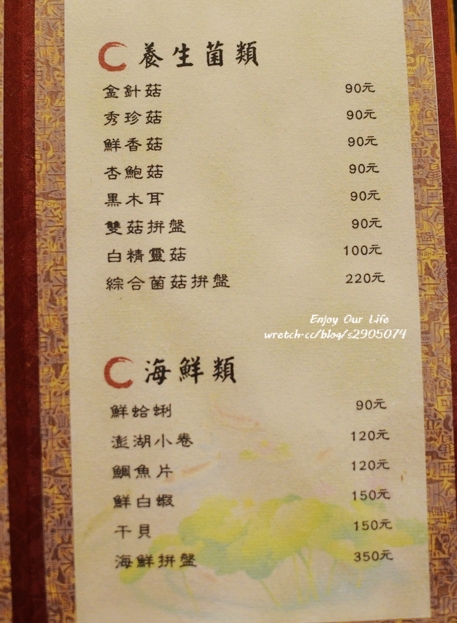 養生菌類
金針菇 90元
秀珍菇 90元
鮮香菇 90元
杏鮑菇 90元
黑木耳 90元
雙菇拼盤 90元
白精靈菇 100元
綜合菌菇拼盤 220元
Enjoy Our Life
wretch.cc/blog/s2905074
海鮮類
鮮蛤蜊 90元
澎湖小卷 120元
鯛魚片 120元
鮮白蝦 150元
干貝 150元
海鮮拼盤 350元